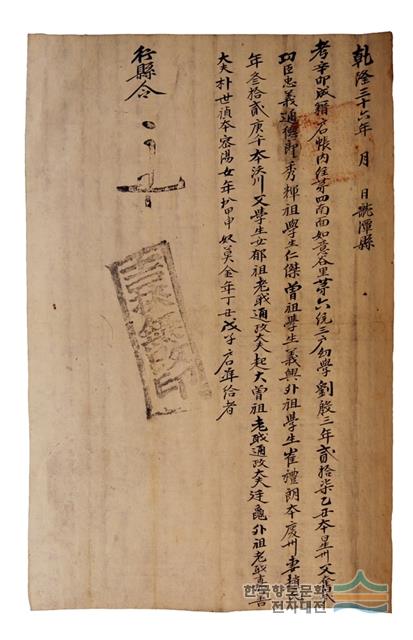 乾隆三十六年 月 日 龍潭縣
考辛卯成籍戶帳內住第四南面如意谷里第六統三戶幼學劉殷三年貳拾柒乙丑本星州父奮武
功臣忠義通德郎秀輝祖學生仁傑曾祖學生義興外祖學生崔禮朗本慶州妻趙氏
年參拾貳庚午本浜川父學生文郁祖老職通政大夫起大曾祖老職通政大夫廷龜外祖老職嘉善
大夫朴世禎本密陽女年捌甲申奴莫金年丁丑戊子戶準給者
行縣令
한국향토문화
전자대전